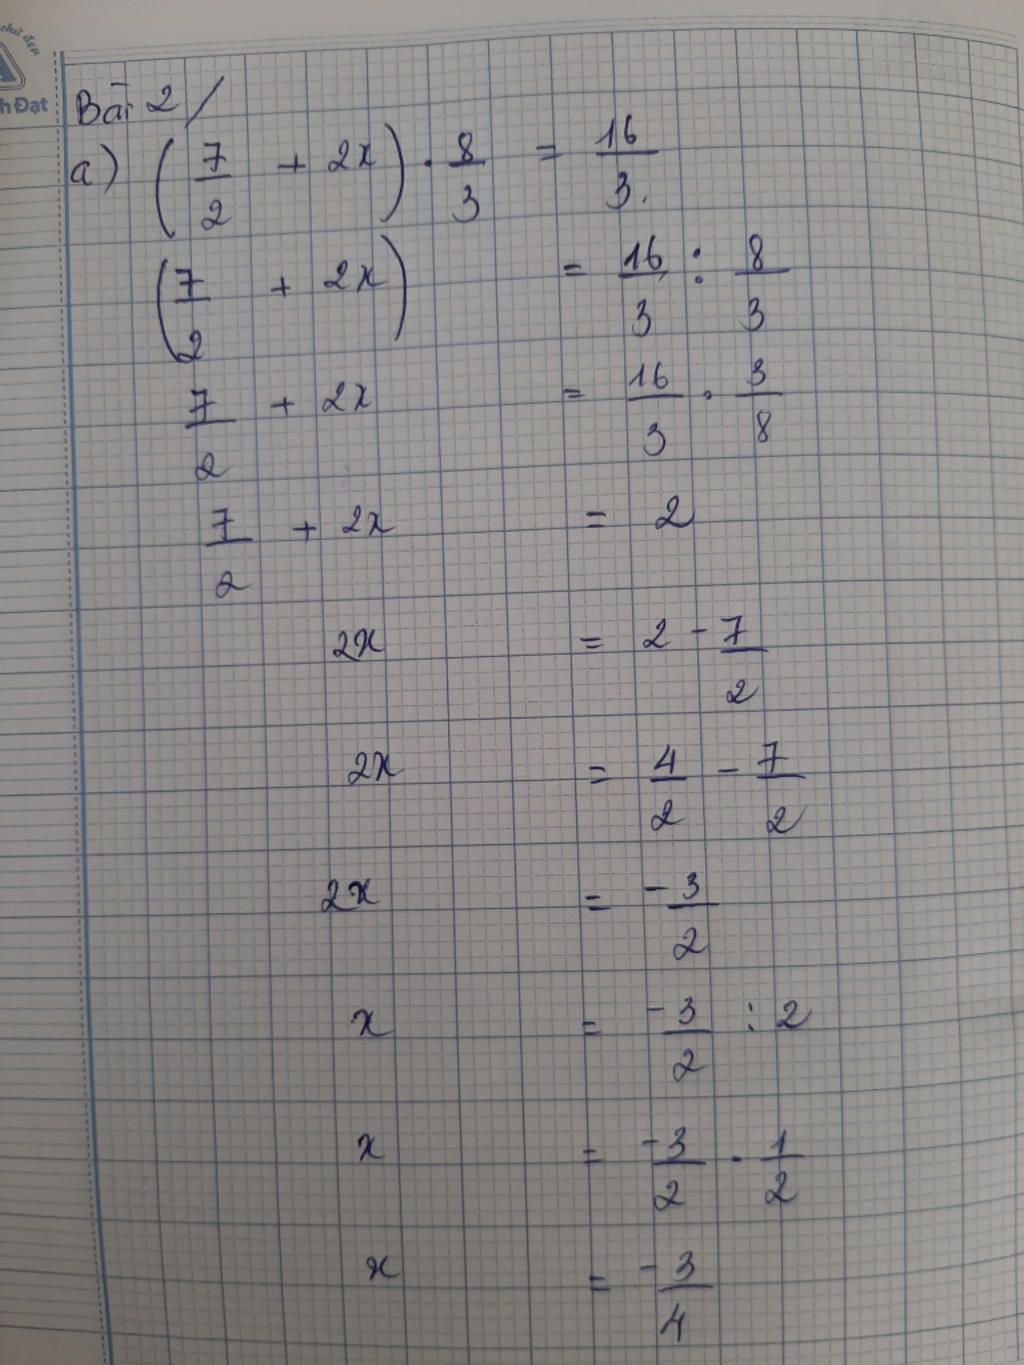 chữ đẹp
h Đạt
Bài 2/
a) (7/2 + 2x) . 8/3 = 16/3.
(7/2 + 2x) = 16/3 : 8/3
7/2 + 2x = 16/3 . 3/8
7/2 + 2x = 2
2x = 2 - 7/2
2x = 4/2 - 7/2
2x = -3/2
x = -3/2 : 2
x = -3/2 . 1/2
x = -3/4